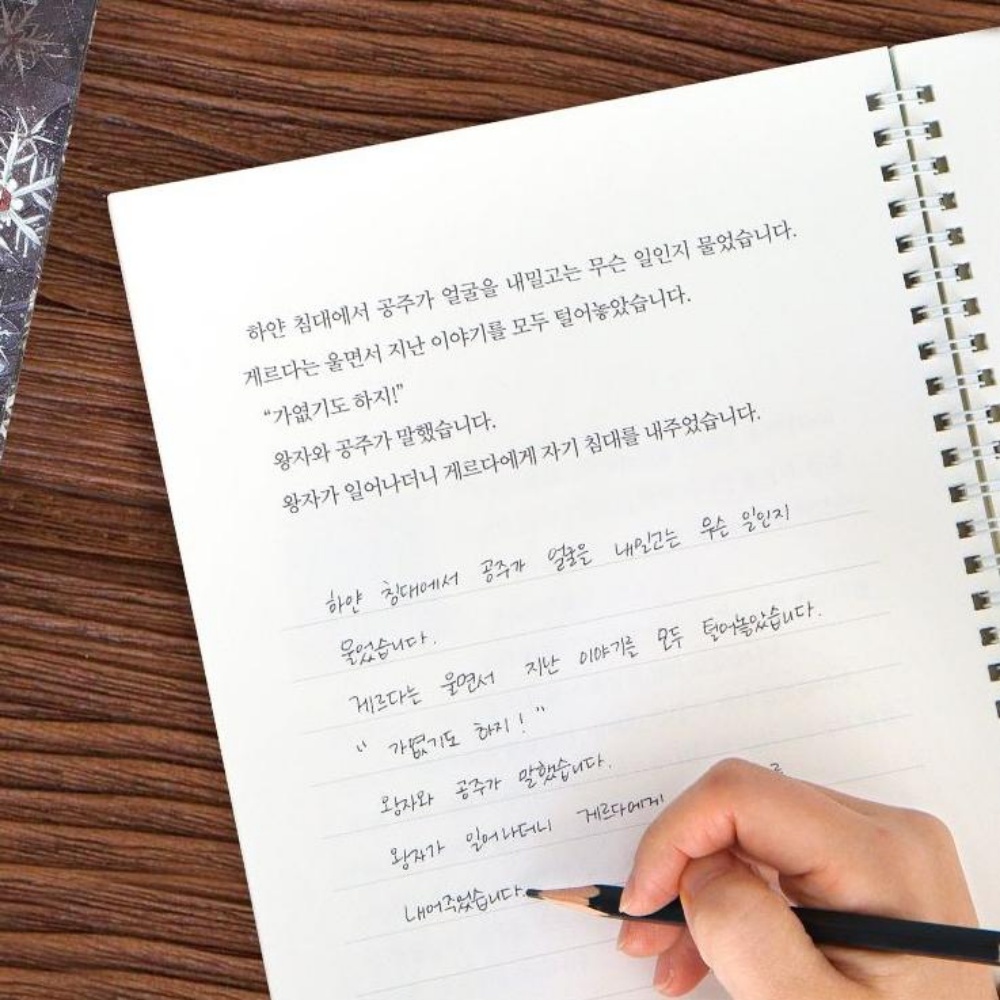 하얀 침대에서 공주가 얼굴을 내밀고는 무슨 일인지 물었습니다.
게르다는 울면서 지난 이야기를 모두 털어놓았습니다.
“가엾기도 하지!”
왕자와 공주가 말했습니다.
왕자가 일어나더니 게르다에게 자기 침대를 내주었습니다.
하얀 침대에서 공주가 얼굴을 내밀고는 무슨 일인지
물었습니다.
게르다는 울면서 지난 이야기를 모두 털어놓았습니다.
“가엾기도 하지!”
왕자와 공주가 말했습니다.
왕자가 일어나더니 게르다에게
내어주었습니다.